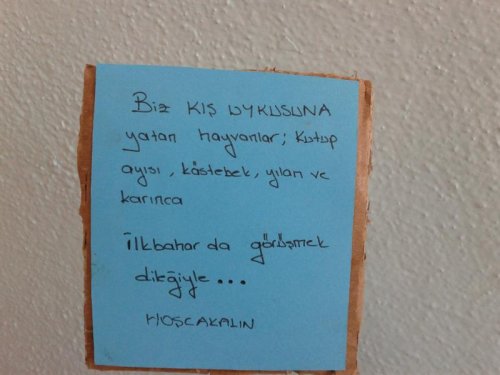 Biz KIŞ UYKUSUNA
yatan hayvanlar; Kutup
ayısı, köstebek, yılan ve
karınca
İlkbahar da görüşmek
dileğiyle...
HOŞCAKALIN